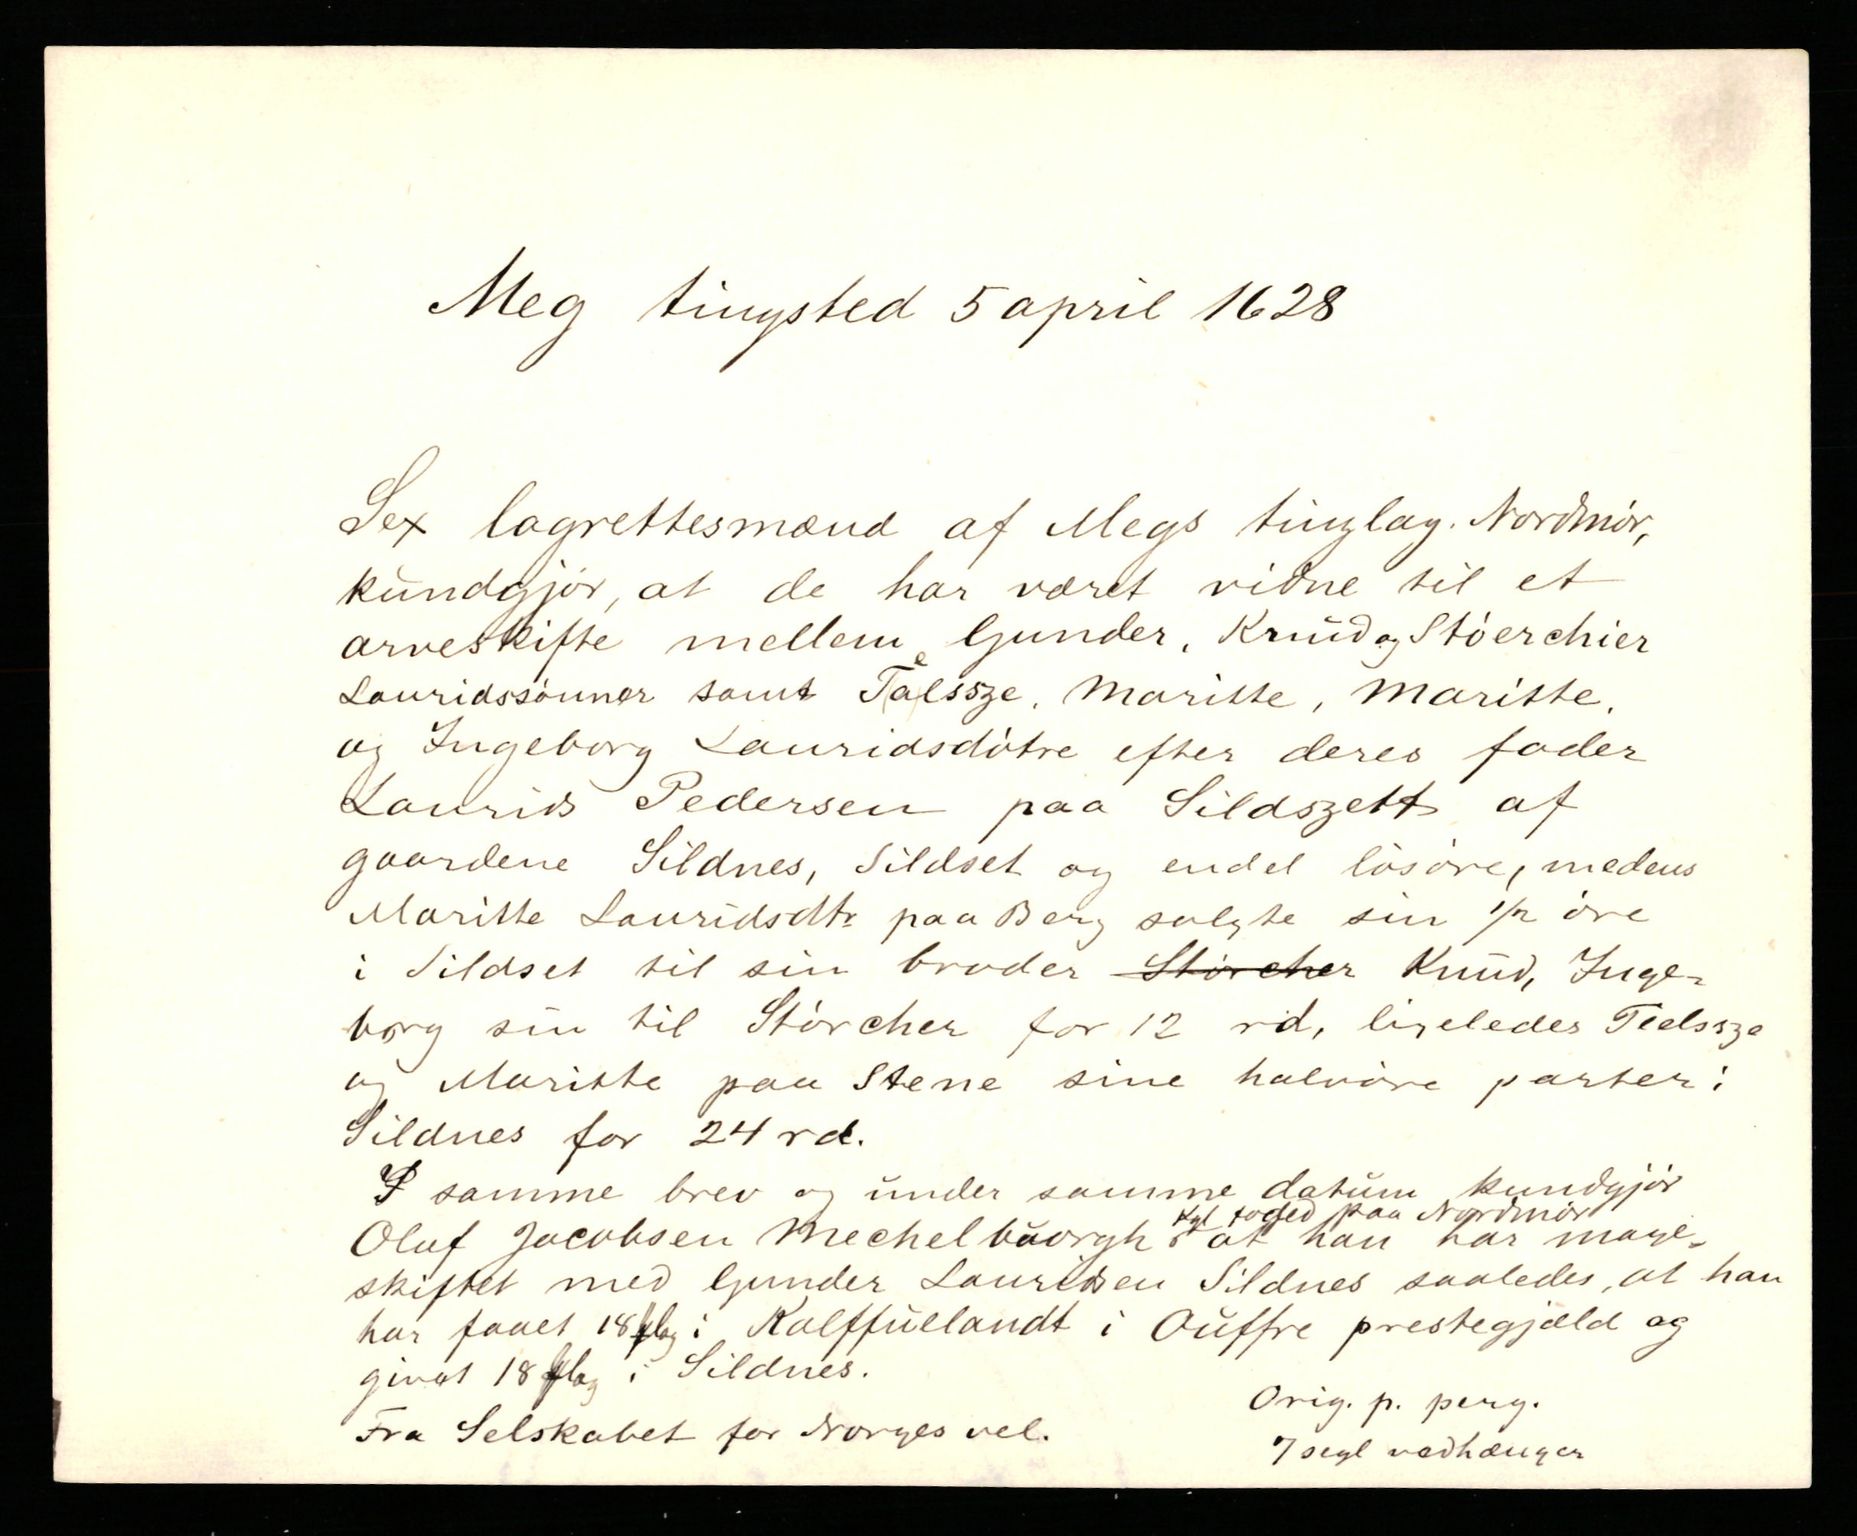 Meg tingsted 5 april 1628
Sex lagrettesmænd af Megs tinglag. Nordmör,
kundgjör, at de har været vidne til et
arveskifte mellem Gunder, Knud og Störchier
Lauridssönner samt Tælssze, Maritte, Maritte,
og Ingeborg Lauridsdötre efter deres fader
Laurids Pedersen paa Sildszett af
gaardene Sildnes, Sildset og endel lösöre, medens
Maritte Lauridsdtr paa Berg solgte sin 1/2 öre
i Sildset til sin broder Störcher Knud, Inge-
borg sin til Störcher for 12 rd, ligeledes Tielssze
og Maritte paa Stene sine halvöre parter i
Sildnes for 24 rd.
I samme brev og under samme datum kundgjör
Oluf Jacobsen Mechelbuorgh kgl foged paa Nordmör at han har mage-
skiftet med Gunder Lauridsen Sildnes saaledes, at han
har faaet 18 mkl i Kalffuelandt i Ouffre prestegjæld og
givet 18 mkl i Sildnes.
Fra Selskabet for Norges vel.
Orig. p. perg.
7 segl vedhænger